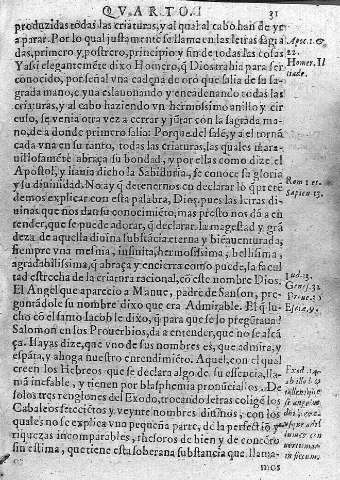 QVARTO.
31
produzidas todas las criaturas, y al qual al cabo han de ve
a parar. Por lo qual justamente se llama en las letras sagra
das, primero, y postrero, principio y fin de todas las cosas
Y assi elegantemẽte dixo Homero, q̃ Dios trahia para ser
conocido, por señal vna cadena de oro que salia de su sa-
grada mano, e yua eslauonando y encadenando todas las
criaturas, y al cabo haziendo vn hermosissimo anillo y cir
culo, se venia otra vez a cerrar y jũtar con la sagrada ma
no, de a donde primero salia: Porque del salẽ, y a el tornã
cada vna en su tanto, todas las criaturas, las quales mara-
uillosamẽte abraça su bondad, y por ellas como dize el
Apostol, y hauia dicho la Sabiduria, se conoce su gloria
y su diuinidad. No ay q̃ detenernos en declarar lo q̃ pretẽ
demos explicar con esta palabra, Dios, pues las letras di
uinas que nos dan su conocimiẽto, mas presto nos dã a en
tender, que se puede adorar, q̃ declarar la magestad y grã
deza de aquella diuina substãcia eterna y bienauenturada,
siempre vna mesma, infinita, hermosissima, bellissima,
agradabilissima, q̃ abraça y encierra como puede, la facul
tad estrecha de la criatura racional, cõ este nombre Dios.
El Angel que aparecio a Manue, padre de Sanson, pregun
tãdole su nombre dixo que era Admirable. El q̃ lu
cho cõ el santo Iacob le dixo, q̃ para que se lo pregũtaua?
Salomon en los Prouerbios, da a entender, que no se alcã
ça. Isayas dize, que vno de sus nombres es, que admira, y
espãta, y ahoga nuestro entendimiẽto. Aquel, con el qual
creen los Hebreos que se declara algo de su essencia, lla
mã inefable, y tienen por blasphemia pronũciallo. De
solos tres renglones del Exodo, trocando letras coligẽ los
Cabaleos setecietos y veynte nombres diuinos, con los
quales no se explica vna pequeña parte, de la perfectiõ y
riquezas incomparables, thesoros de bien y de concierto
sin estima, que tiene esta soberana substancia que llama-
mos
Apoc. 1. &
22.
Homer. Il
iade.
Rom 1 et
Sapien 13.
Iud. 13.
Genes. 32
Prouer. 30
Esaiæ. 9.
Exod. 14.